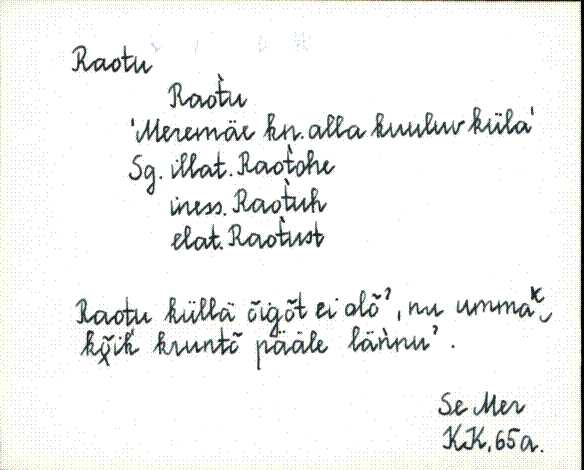 Raotu
Raot̀u
'Meremäe kn. alla kuuluv küla'
Sg. illat. Raot̀ohe
iness. Raot̀uh
elat. Raot̀ust
Raotu küllä õigõt ei olõ', nu umma
kõik kruntõ pääle läǹnu'.
Se Mer
KK, 65a.